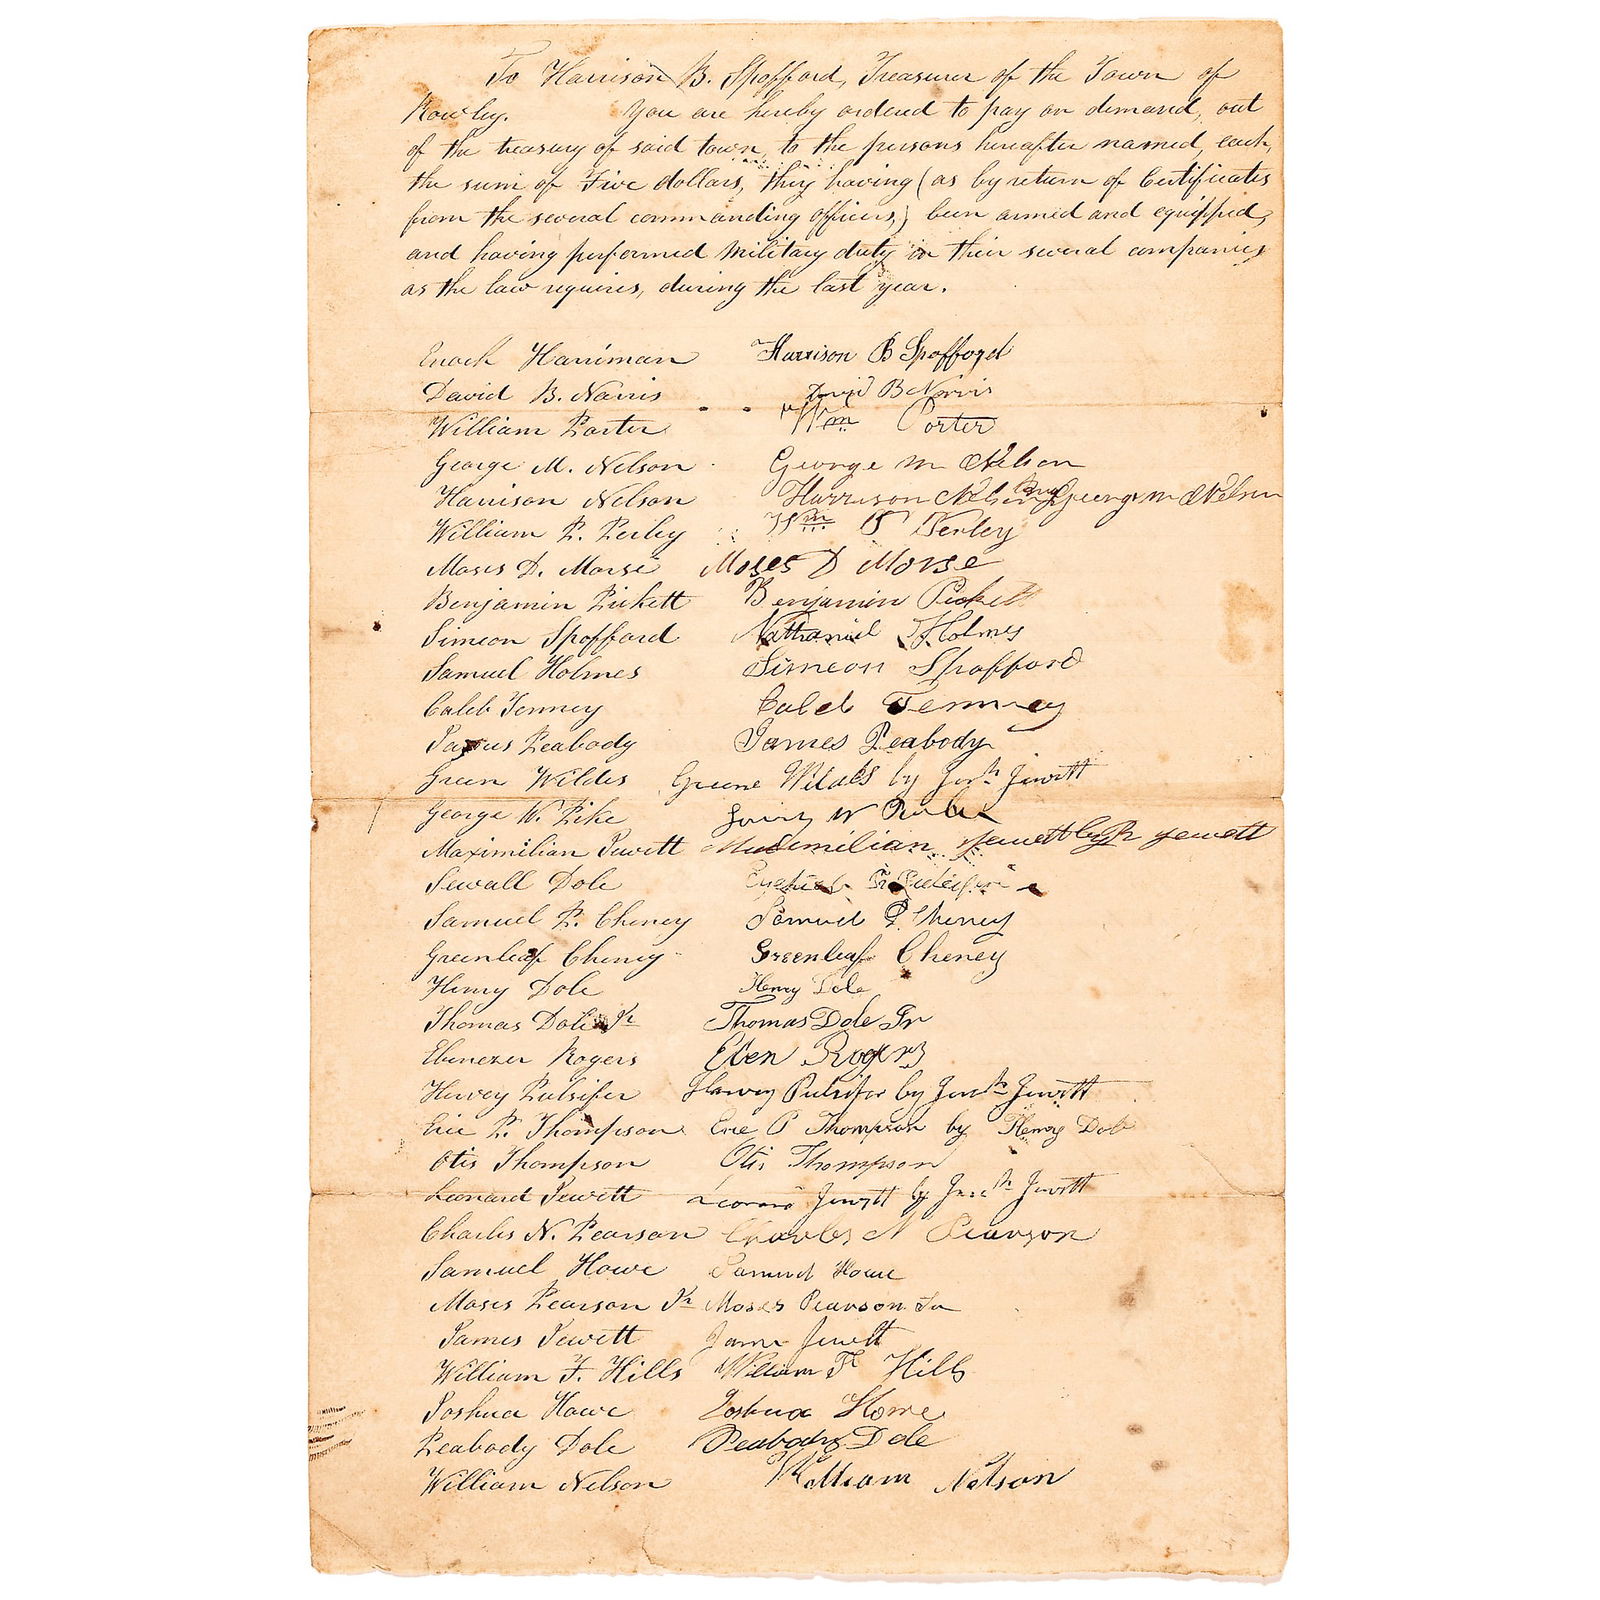 To Harrison B. Spofford, Treasurer of the Town of
Rowley. You are hereby ordered to pay on demand, out
of the treasury of said town, to the persons hereafter named, each,
the sum of Five dollars, they having (as by return of Certificates
from the several commanding officers,) been armed and equipped,
and having performed military duty in their several companies
as the law requires, during the last year.
Enoch Harriman Harrison B Spofford
David B. Norris David B Norris
William Porter Wm Porter
George M. Nelson George M Nelson
Harrison Nelson Harrison Nelson George M Nelson
William P. Perley Wm P Perley
Moses D. Morse Moses D Morse
Benjamin Pickett Benjamin Pickett
Simeon Spofford Nathaniel Holmes
Samuel Holmes Simeon Spofford
Caleb Tenney Caleb Tenney
James Peabody James Peabody
Green Wildes Greene Wildes by Jos.h Jewett
George W. Pike W
Maximilian Jewett Maximilian Jewett by Jewett
Sewall Dole
Samuel P. Cheney Samuel P. Cheney
Greenleaf Cheney Greenleaf Cheney
Henry Dole Henry Dole
Thomas Dole Jr Thomas Dole Jr
Ebenezer Rogers Eben Rogers
Harvey Pulsifer Harvey Pulsifer by Jos.h Jewett
Eric P. Thompson Eric P Thompson by Henry Dole
Otis Thompson Otis Thompson
Leonard Jewett Leonard Jewett by Jos.h Jewett
Charles N. Pearson Charles N Pearson
Samuel Howe Samuel Howe
Moses Pearson Jr Moses Pearson Jr
James Jewett James Jewett
William F. Hills William F Hills
Joshua Howe Joshua Howe
Peabody Dole Peabody Dole
William Nelson William Nelson